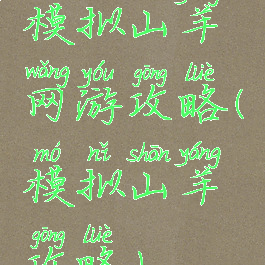 模拟山羊
wǎng yóu gōng lüè
网游攻略(
mó nǐ shān yáng
模拟山羊
gōng lüè
攻略)